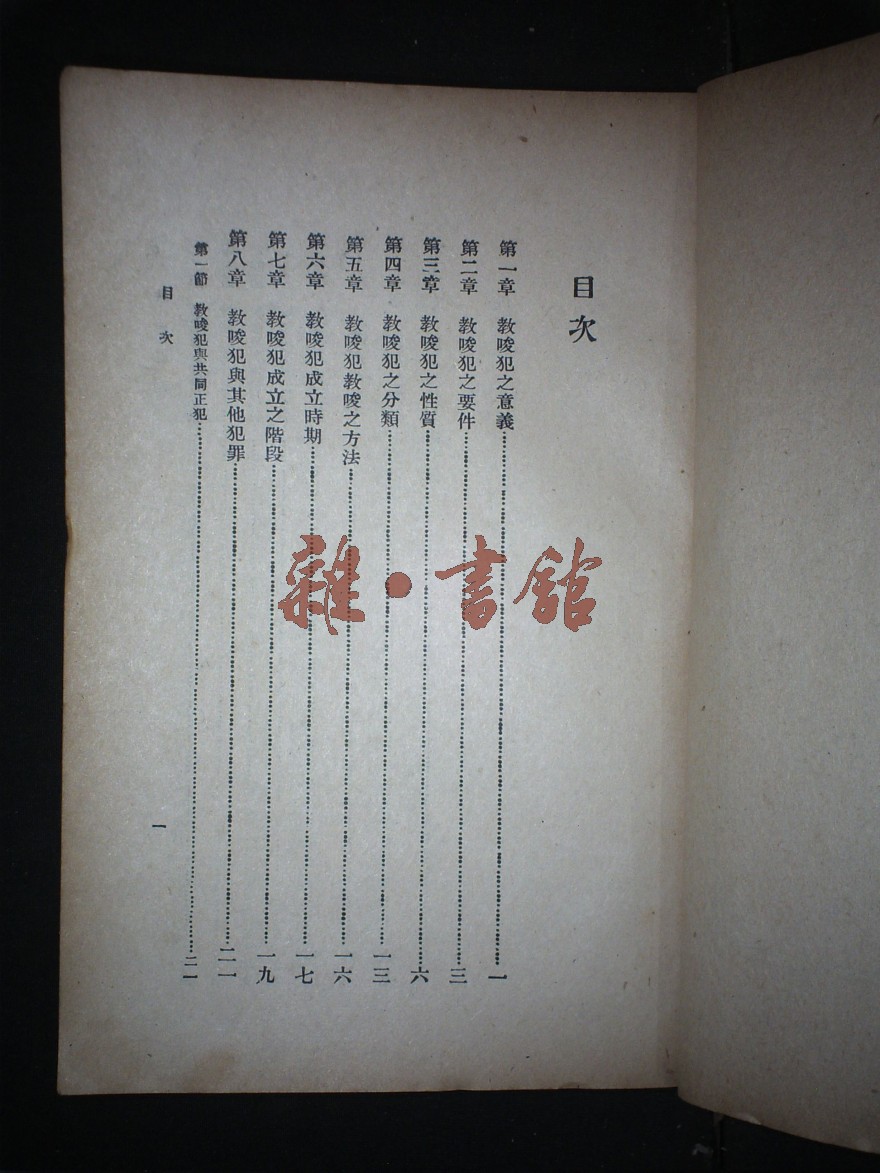 目次
第一章 教唆犯之意義……一
第二章 教唆犯之要件……三
第三章 教唆犯之性質……六
第四章 教唆犯之分類……一三
第五章 教唆犯教唆之方法……一六
第六章 教唆犯成立時期……一七
第七章 教唆犯成立之階段……一九
第八章 教唆犯與其他犯罪……二一
第一節 教唆犯與共同正犯……二一
目次
一
雜•書館